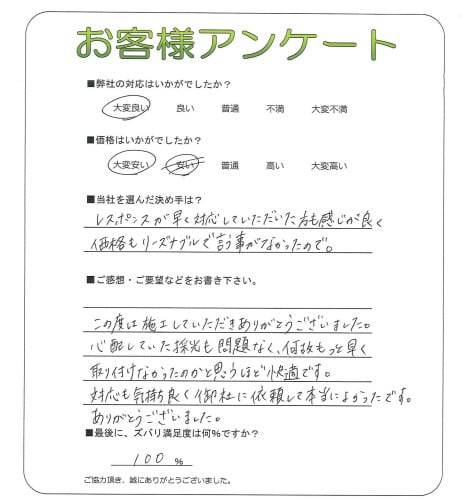 お客様アンケート
■弊社の対応はいかがでしたか？
大変良い 良い 普通 不満 大変不満
■価格はいかがでしたか？
大変安い 安い 普通 高い 大変高い
■当社を選んだ決め手は？
レスポンスが早く対応していただいた方も感じが良く
価格もリーズナブルで言う事がなかったので。
■ご感想・ご要望などをお書き下さい。
この度は施工していただきありがとうございました。
心配していた採光も問題なく、何故もっと早く
取り付けなかったのかと思うほど快適です。
対応も気持ち良く御社に依頼して本当によかったです。
ありがとうございました。
■最後に、ズバリ満足度は何%ですか？
100 %
ご協力頂き、誠にありがとうございました。